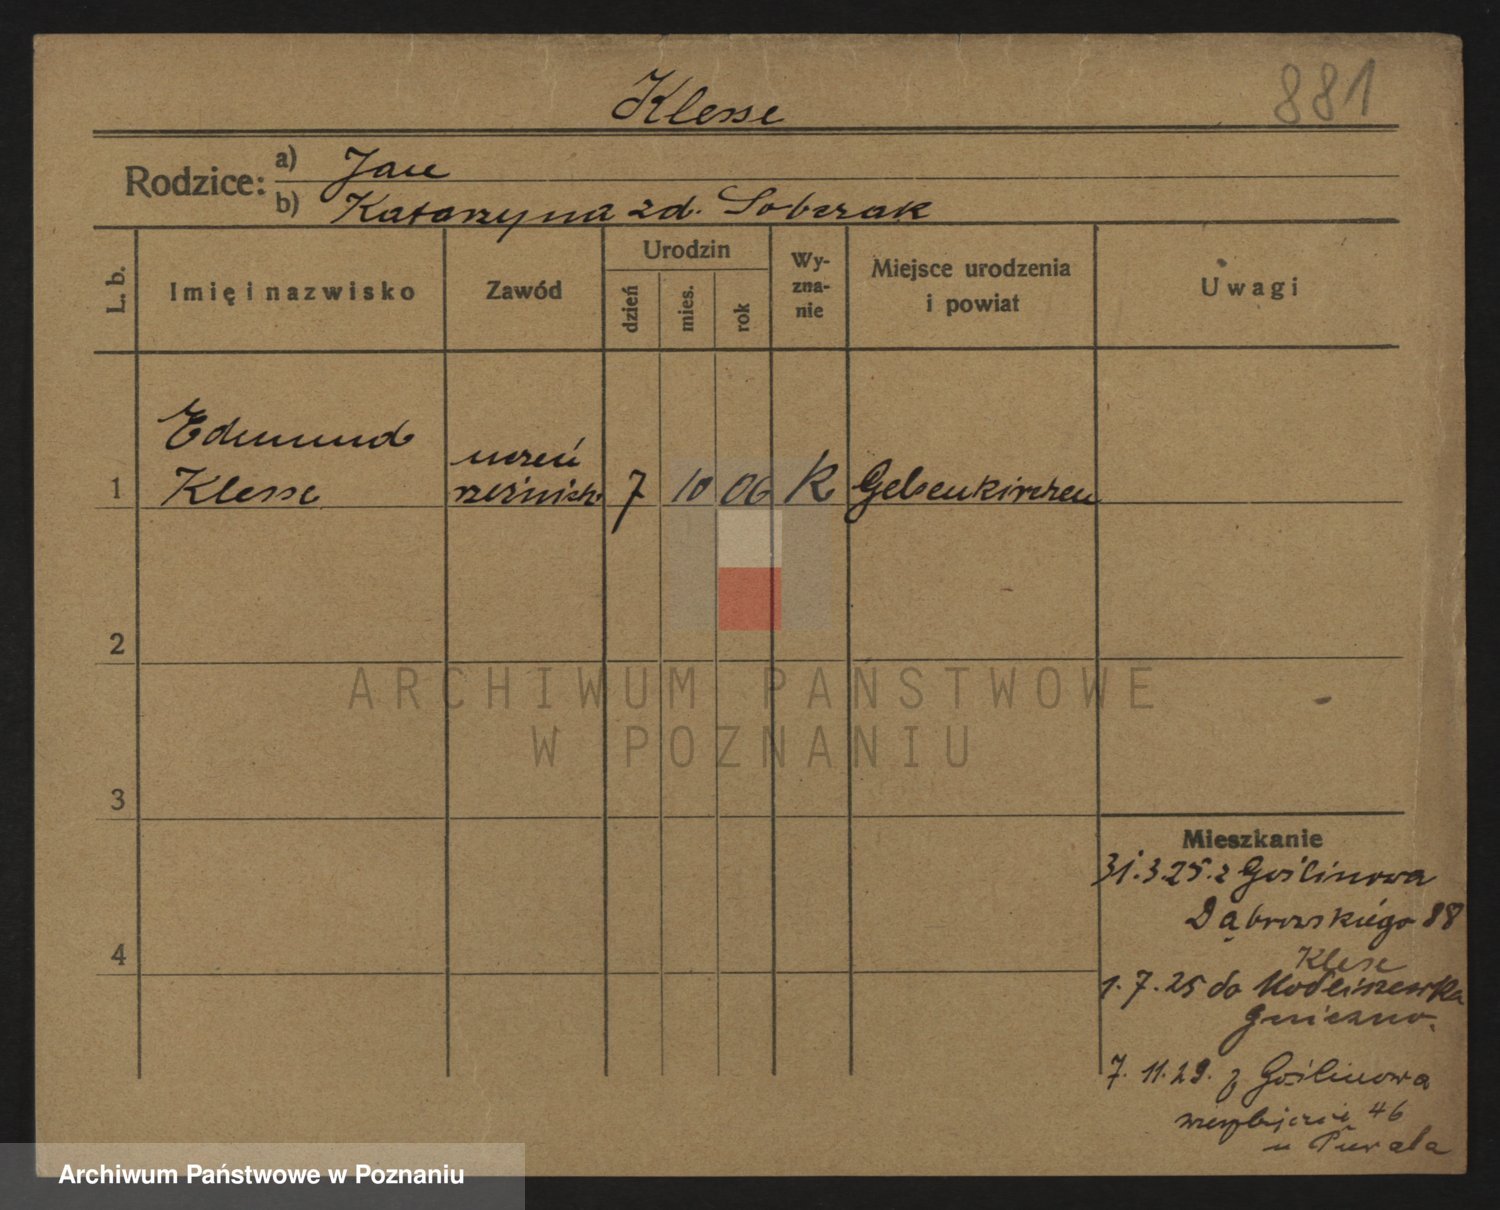 Klesse
881
Rodzice:
a) Jan
b) Katarzyna zd. Sobczak
L. b.
Imię i nazwisko
Zawód
Urodzin
dzień
mies.
rok
Wy-
zna-
nie
Miejsce urodzenia
i powiat
Uwagi
Edmund
1 Klesse
uczeń
rzeźnick. 7 10 06 K Gelsenkirchen
2
3
4
Mieszkanie
31.3.25. z Goślinowa
Dąbrowskiégo 88
Klese
1.7.25 do
Gniezno.
7.11.29. z Goślinowa
46
u
ARCHIWUM PAŃSTWOWE
W POZNANIU
Archiwum Państwowe w Poznaniu